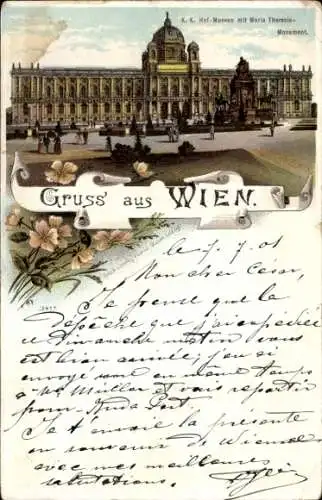 K. K. Hof-Museen mit Maria Theresia-
Monument.
Gruss aus WIEN.
le 7.7.01
Mon cher César,
Je pense que la
dépêche que j'ai expédiée
ce Dimanche matin vous
est bien arrivée; j'en ai
envoyé une en même temps
à Mr Müller et vais repartir
pour Buda Pest
Je t'envoie la présente
en souvenir de Vienne
avec mes meilleures
salutations.